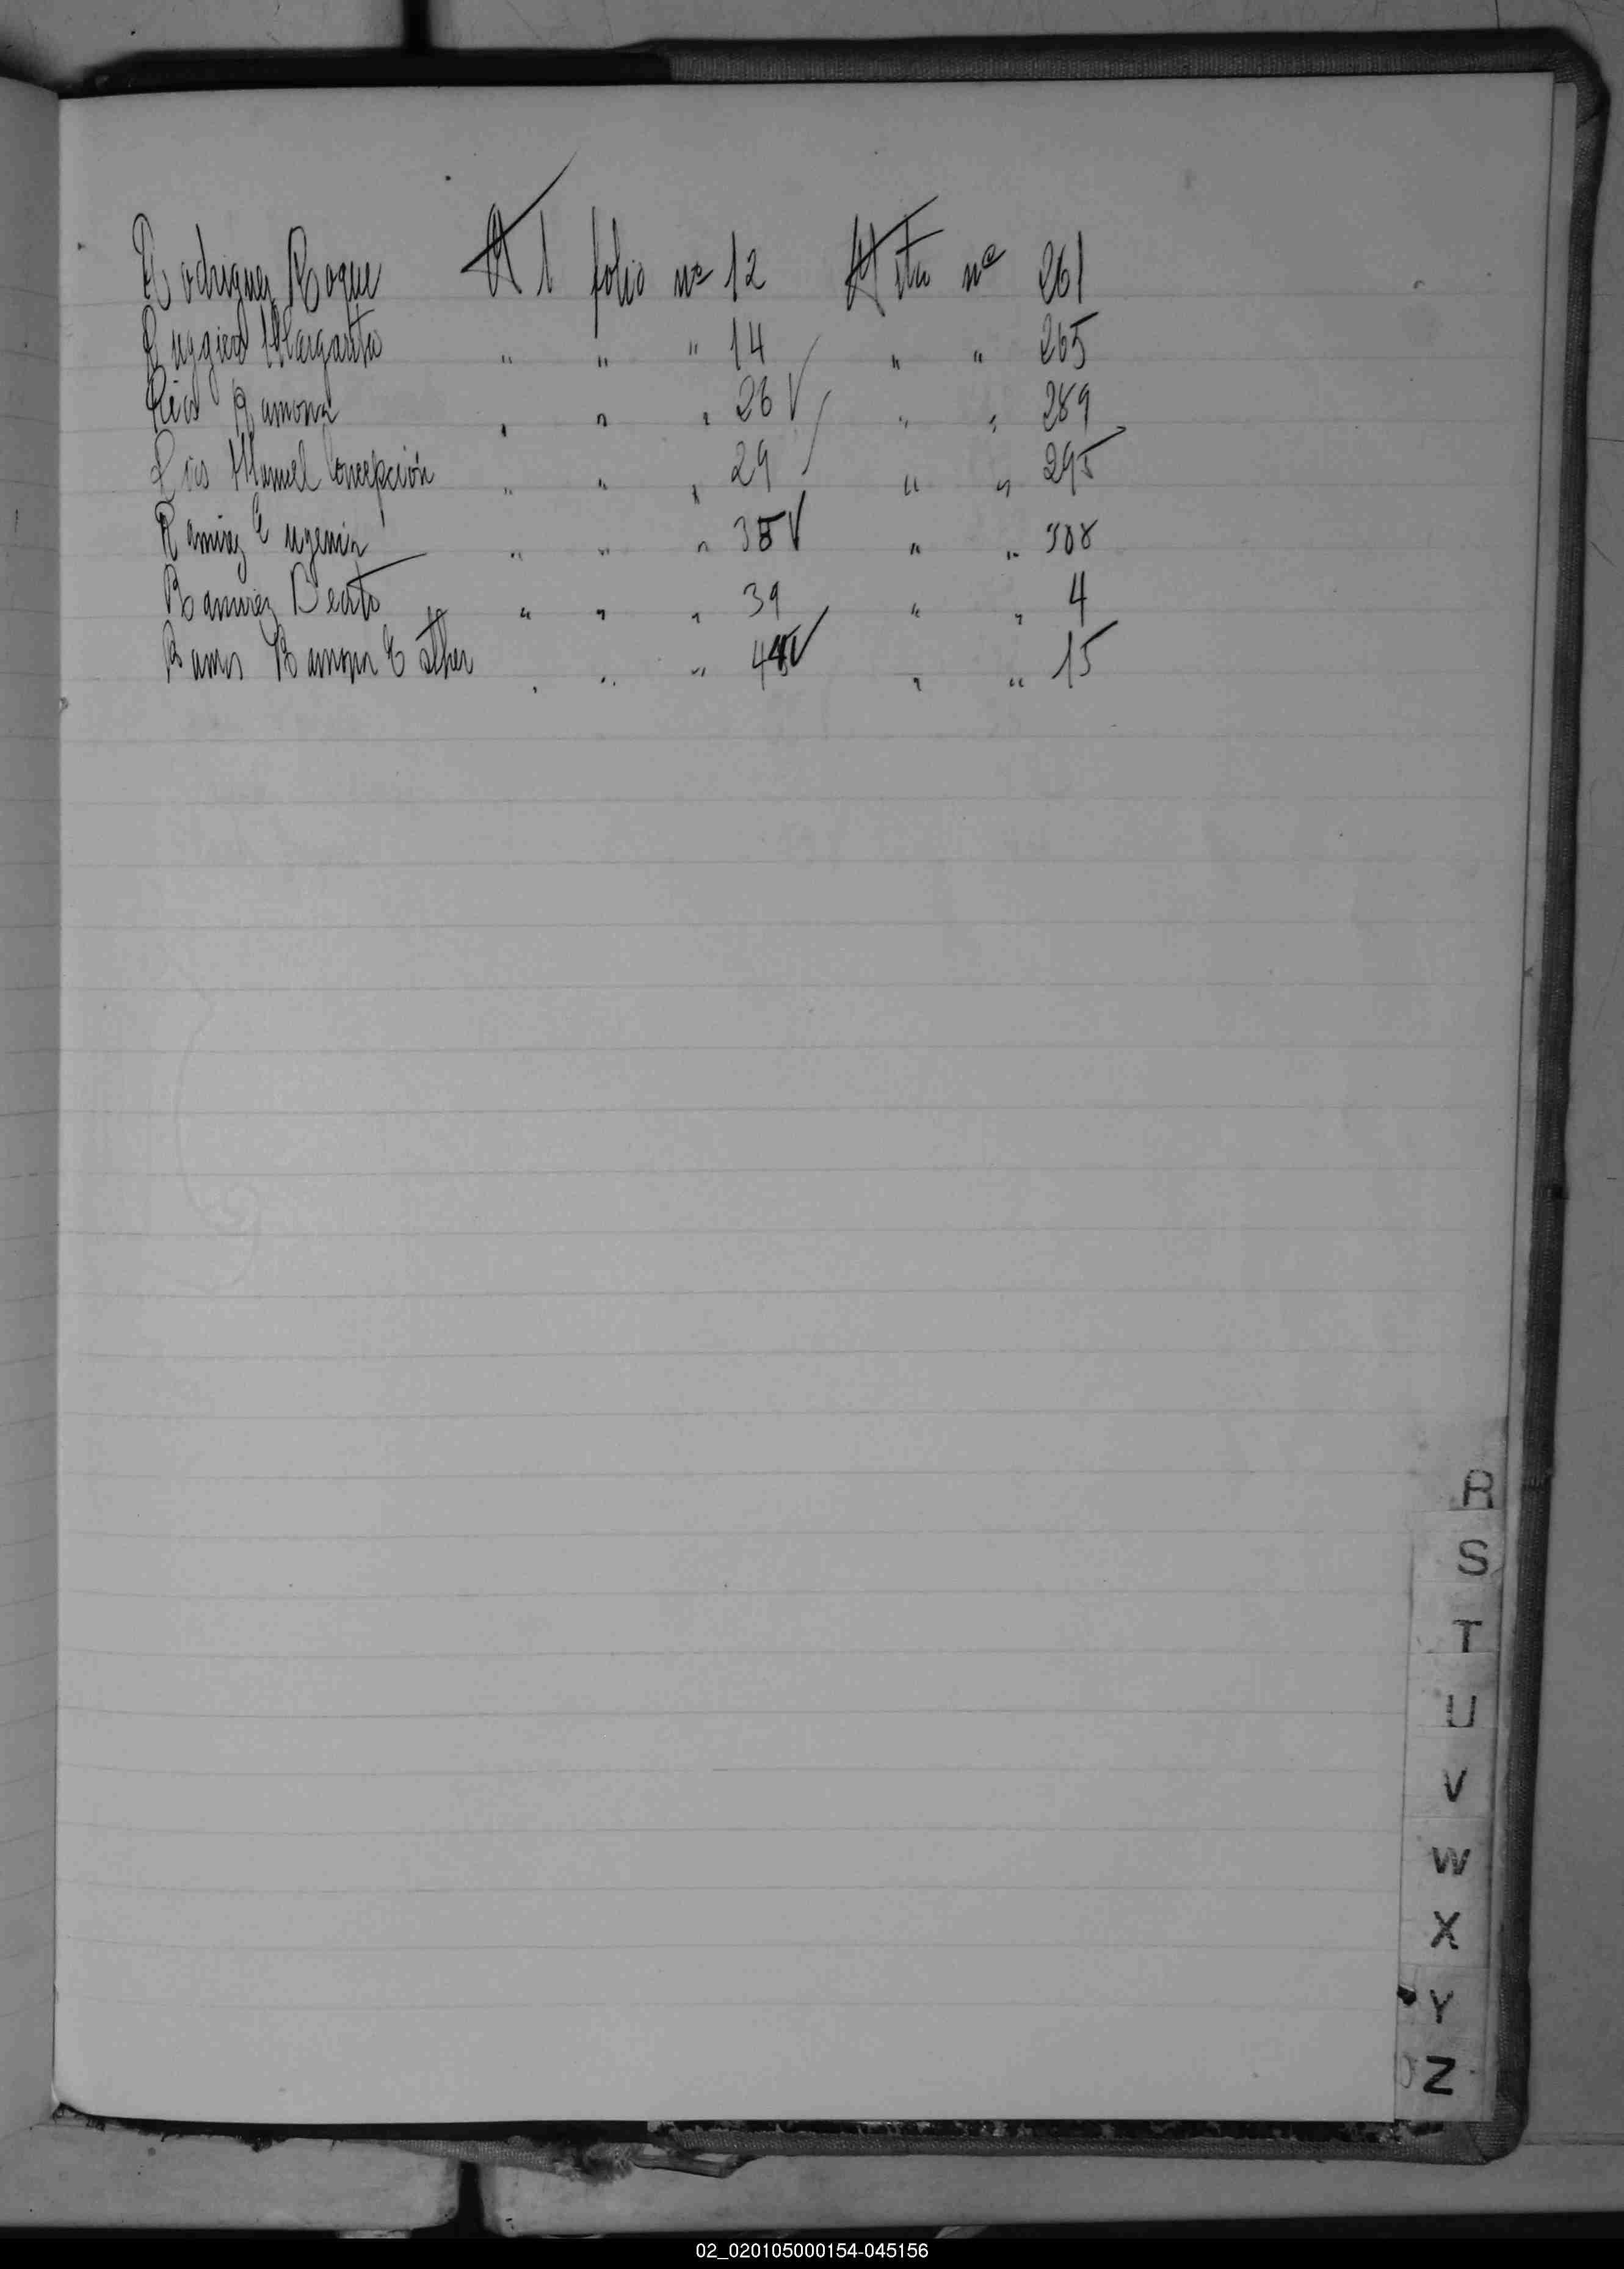 Rodriguez Roque Al folio nº 12 Acta nº 261
Ruggiero Margarita " " " 14 " " 265
Rios Ramona " " " 26 V " " 289
Rios Manuel Concepción " " " 29 " " 295
Ramirez Eugenia " " " 35 V " " 308
Ramirez Benito " " " 39 " " 4
Ramos Ramona Esther " " " 44 V " " 15
R
S
T
U
V
W
X
Y
Z
02_020105000154-045156